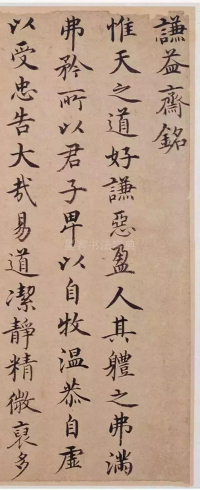 謙益齋銘
惟天之道好謙惡盈人其體之弗滿
弗矜所以君子卑以自牧溫恭自虛
以受忠告大哉易道潔靜精微裒多